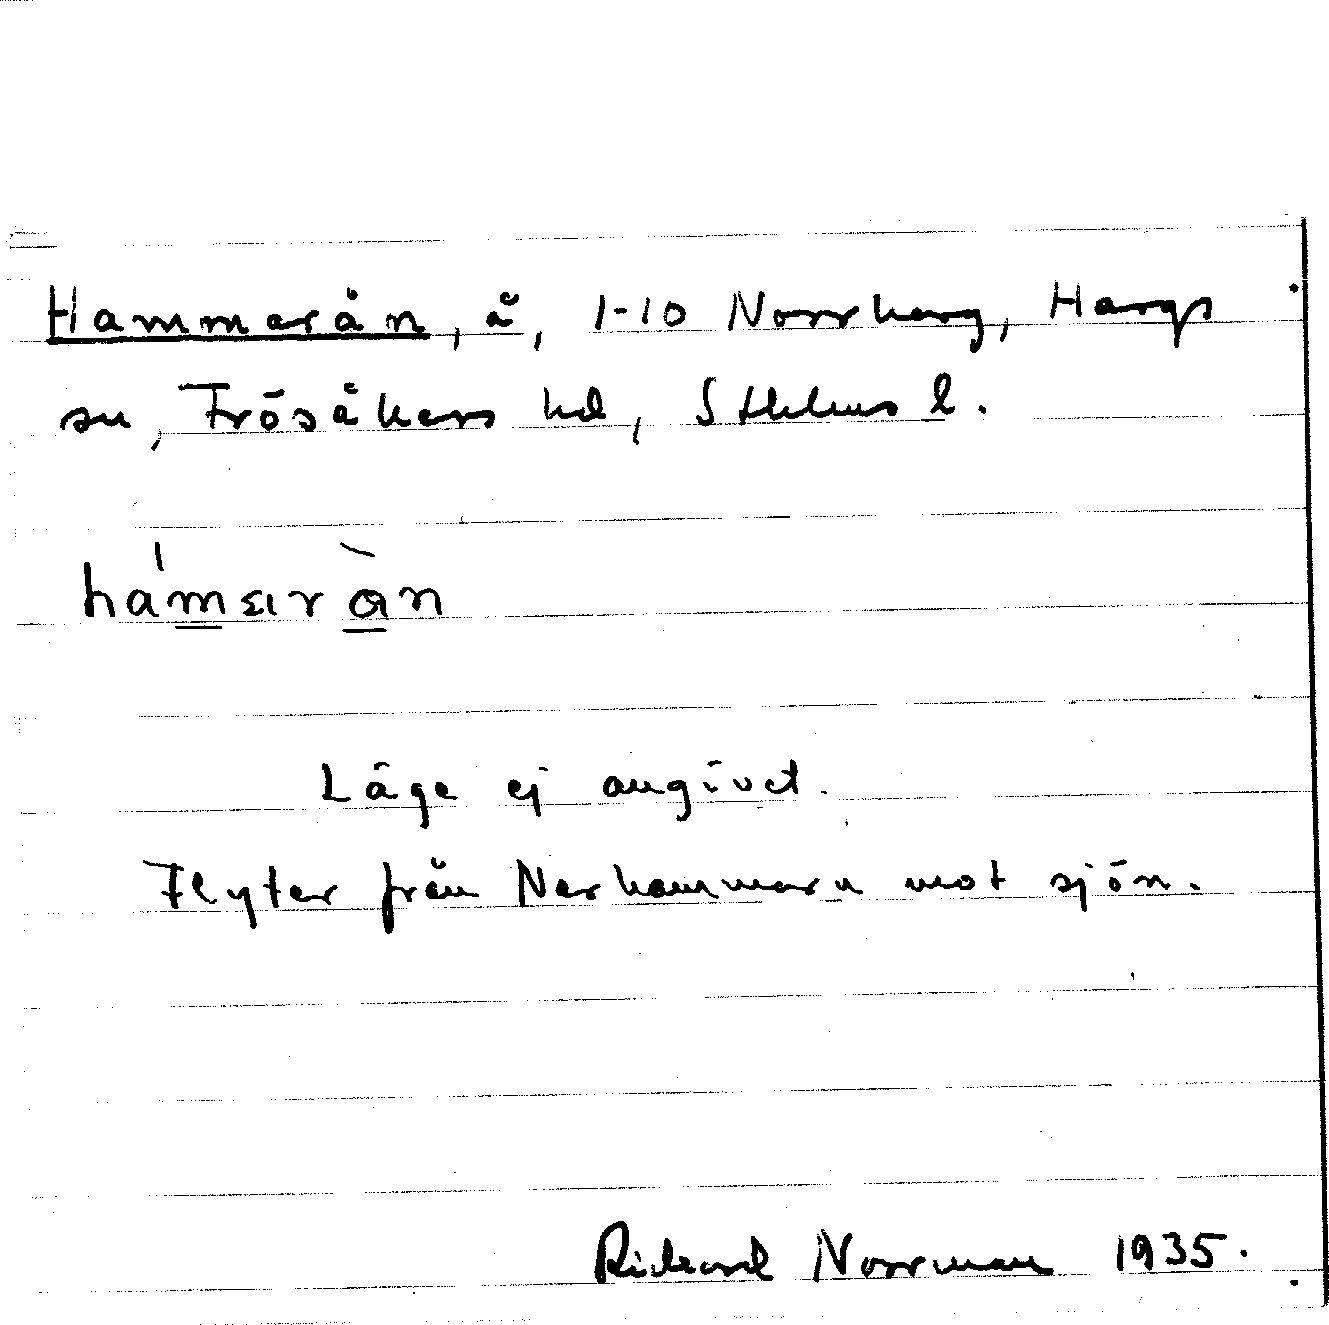 Hammarån, å, 1-10 Norrharg, Hargs
sn, Frösåkers hd, Sthlms l.
Läge ej angivet.
Flyter från Nerhammarn mot sjön.
Rickard Norrman 1935.